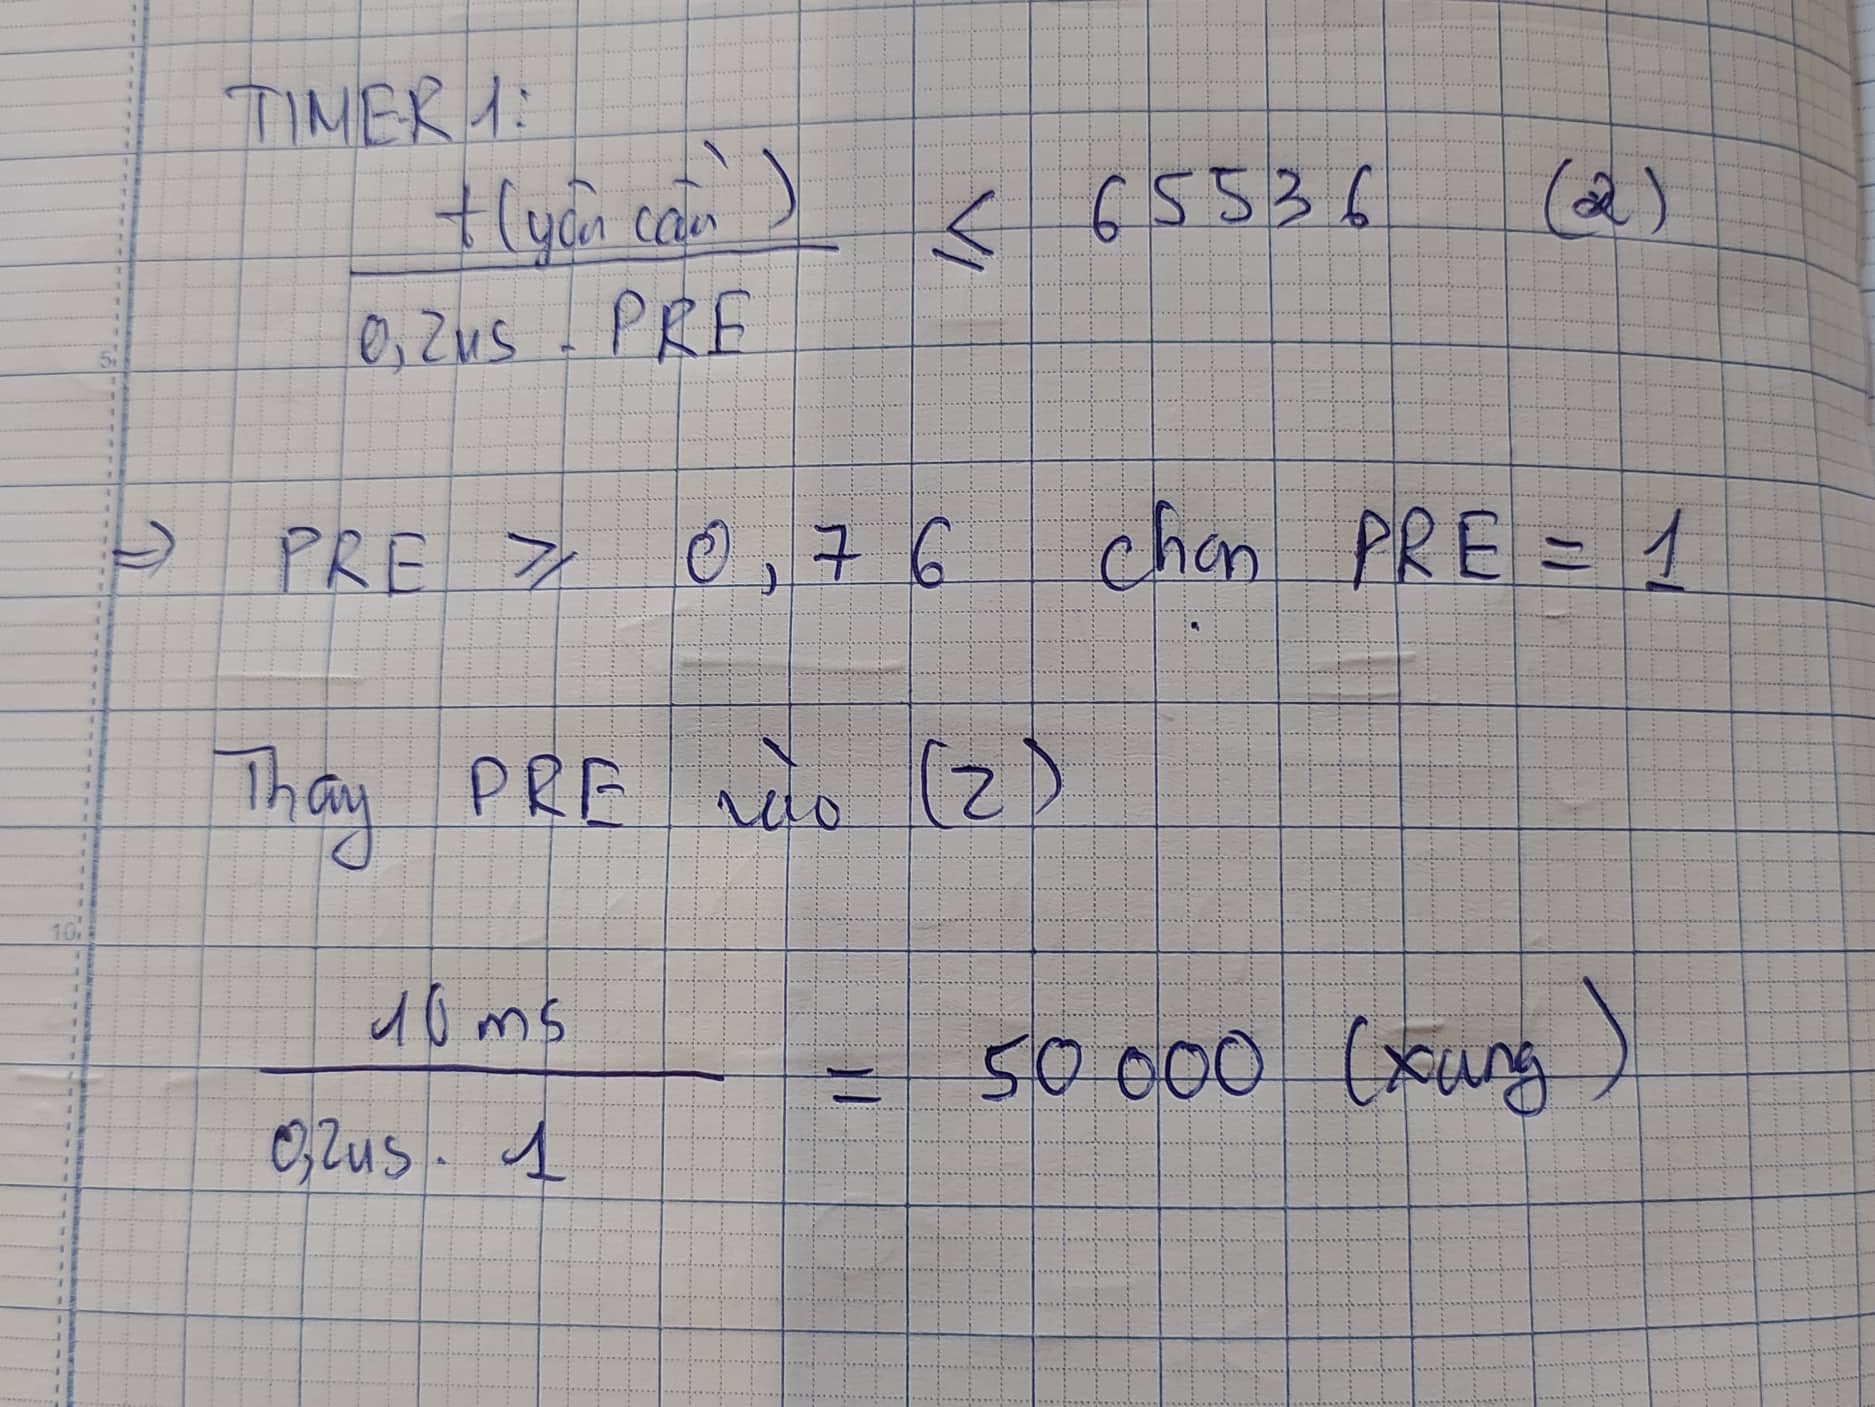 TIMER 1:
t (yêu cầu)
0,2us . PRE
≤ 65536 (2)
⇒ PRE ≥ 0,76 chọn PRE = 1
Thay PRE vào (2)
10 ms
0,2us . 1
= 50 000 (xung)
5
10